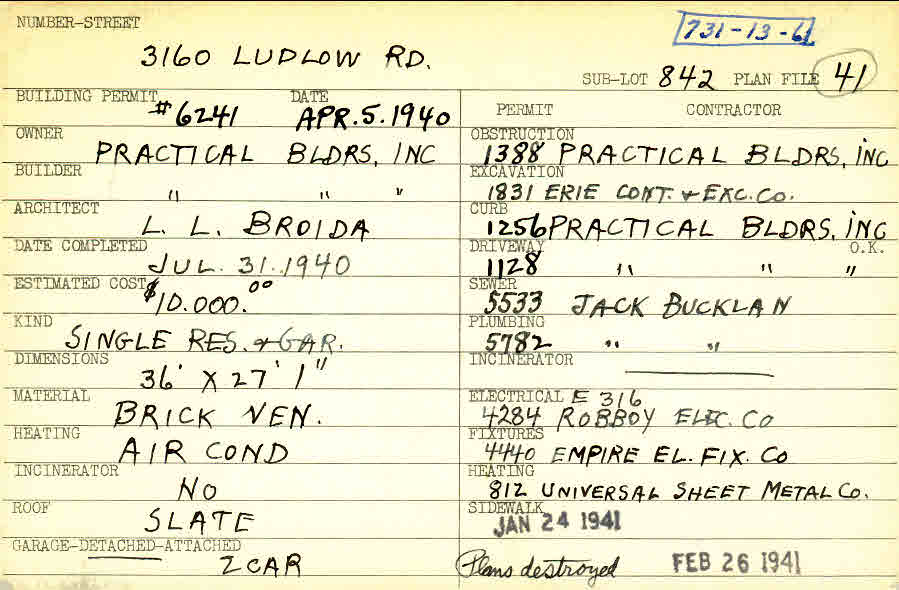 NUMBER-STREET
731-13-61
3160 LUDLOW RD.
SUB-LOT 842 PLAN FILE 41
BUILDING PERMIT DATE
#6241 APR. 5. 1940
PERMIT CONTRACTOR
OWNER
PRACTICAL BLDRS, INC
OBSTRUCTION
1388 PRACTICAL BLDRS, INC
BUILDER
" " "
EXCAVATION
1831 ERIE CONT. & EXC. CO.
ARCHITECT
L. L. BROIDA
CURB
1256 PRACTICAL BLDRS, INC
DATE COMPLETED
JUL. 31. 1940
DRIVEWAY O.K.
1128 " " "
ESTIMATED COST
$10.000.00
SEWER
5533 JACK BUCKLAN
KIND
SINGLE RES. & GAR.
PLUMBING
5782 " "
DIMENSIONS
36' X 27' 1"
INCINERATOR
MATERIAL
BRICK VEN.
ELECTRICAL E 316
4284 ROBBOY ELEC. CO
HEATING
AIR COND
FIXTURES
4440 EMPIRE EL. FIX. CO
INCINERATOR
NO
HEATING
812 UNIVERSAL SHEET METAL CO.
ROOF
SLATE
SIDEWALK
JAN 24 1941
GARAGE-DETACHED-ATTACHED
2 CAR
Plans destroyed FEB 26 1941